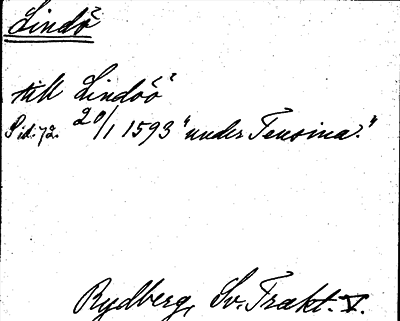 Lindö
till Lindöö
Sid. 72. 20/1 1593 "under Tensina."
Rydberg, Sv. Trakt. V.